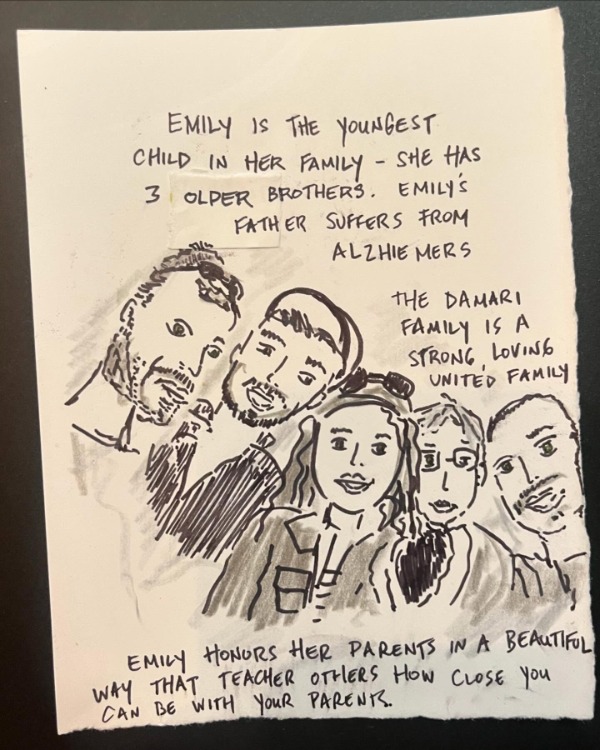 EMILY IS THE YOUNGEST
CHILD IN HER FAMILY - SHE HAS
3 OLDER BROTHERS. EMILY'S
FATHER SUFFERS FROM
ALZHIEMERS
THE DAMARI
FAMILY IS A
STRONG, LOVING
UNITED FAMILY
EMILY HONORS HER PARENTS IN A BEAUTIFUL
WAY THAT TEACHER OTHERS HOW CLOSE YOU
CAN BE WITH YOUR PARENTS.